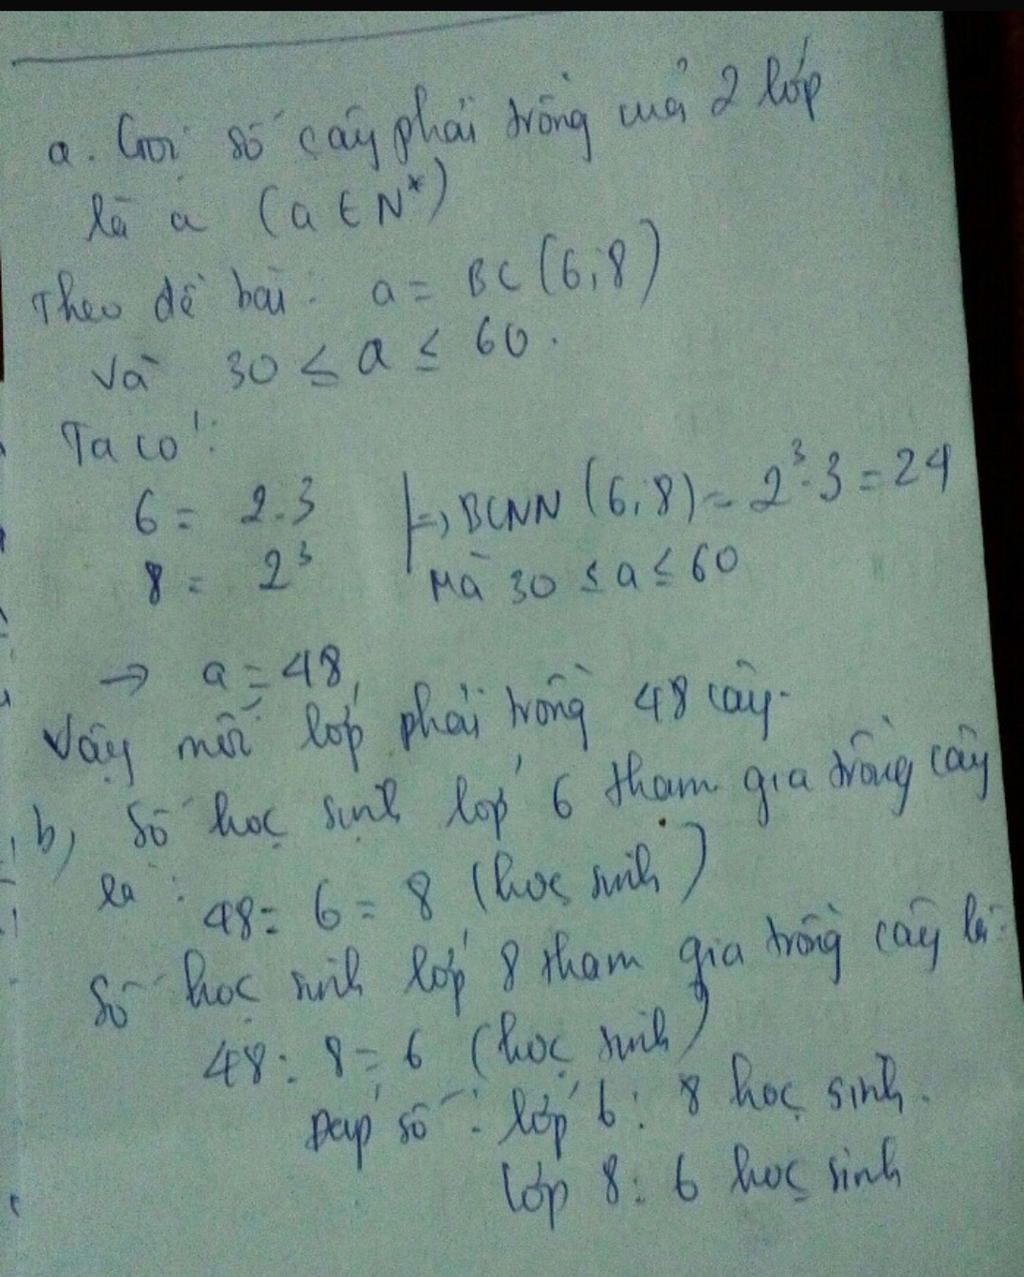 a. Gọi số cây phải trồng của 2 lớp
là a (a ∈ N*)
Theo đề bài: a = BC (6;8)
Và 30 ≤ a ≤ 60.
Ta có:
6 = 2.3 |=> BCNN (6;8) = 2³.3 = 24
8 = 2³ Mà 30 ≤ a ≤ 60
→ a = 48
Vậy mỗi lớp phải trồng 48 cây.
b, Số học sinh lớp 6 tham gia trồng cây
là :
48 : 6 = 8 (học sinh)
Số học sinh lớp 8 tham gia trồng cây là:
48 : 8 = 6 (học sinh)
Đáp số : lớp 6 : 8 học sinh.
lớp 8 : 6 học sinh